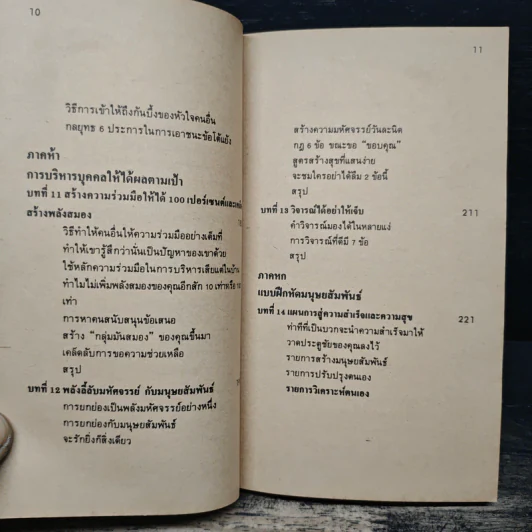 10
วิธีการเข้าให้ถึงก้นบึ้งของหัวใจคนอื่น
กลยุทธ 6 ประการในการเอาชนะข้อโต้แย้ง
ภาคห้า
การบริหารบุคคลให้ได้ผลตามเป้า
บทที่ 11 สร้างความร่วมมือให้ได้ 100 เปอร์เซนต์และ
สร้างพลังสมอง
วิธีทำให้คนอื่นให้ความร่วมมืออย่างเต็มที่
ทำให้เขารู้สึกว่านั่นเป็นปัญหาของเขาด้วย
ใช้หลักความร่วมมือในการบริหารเสียแต่ในบ้าน
ทำไมไม่เพิ่มพลังสมองของคุณอีกสัก 10 เท่าหรือ
เท่า
การหาคนสนับสนุนข้อเสนอ
สร้าง “กลุ่มมันสมอง” ของคุณขึ้นมา
เคล็ดลับการขอความช่วยเหลือ
สรุป
บทที่ 12 พลังลี้ลับมหัศจรรย์ กับมนุษยสัมพันธ์
การยกย่องเป็นพลังมหัศจรรย์อย่างหนึ่ง
การยกย่องกับมนุษยสัมพันธ์
จะรักยิ่งก็สิ่งเดียว
11
สร้างความมหัศจรรย์วันละนิด
กฎ 6 ข้อ ขณะขอ “ขอบคุณ”
สูตรสร้างสุขที่แสนง่าย
จะชมใครอย่าได้ลืม 2 ข้อนี้
สรุป
บทที่ 13 วิจารณ์ได้อย่าให้เจ็บ 211
คำวิจารณ์มองได้ในหลายแง่
การวิจารณ์ที่ดีมี 7 ข้อ
สรุป
ภาคหก
แบบฝึกหัดมนุษยสัมพันธ์
บทที่ 14 แผนการสู่ความสำเร็จและความสุข 221
ท่าทีที่เป็นบวกจะนำความสำเร็จมาให้
วาดประตูชัยของคุณลงไว้
รายการสร้างมนุษยสัมพันธ์
รายการปรับปรุงตนเอง
รายการวิเคราะห์ตนเอง